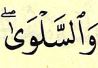 وَٱلسَّلْوَىٰۖ